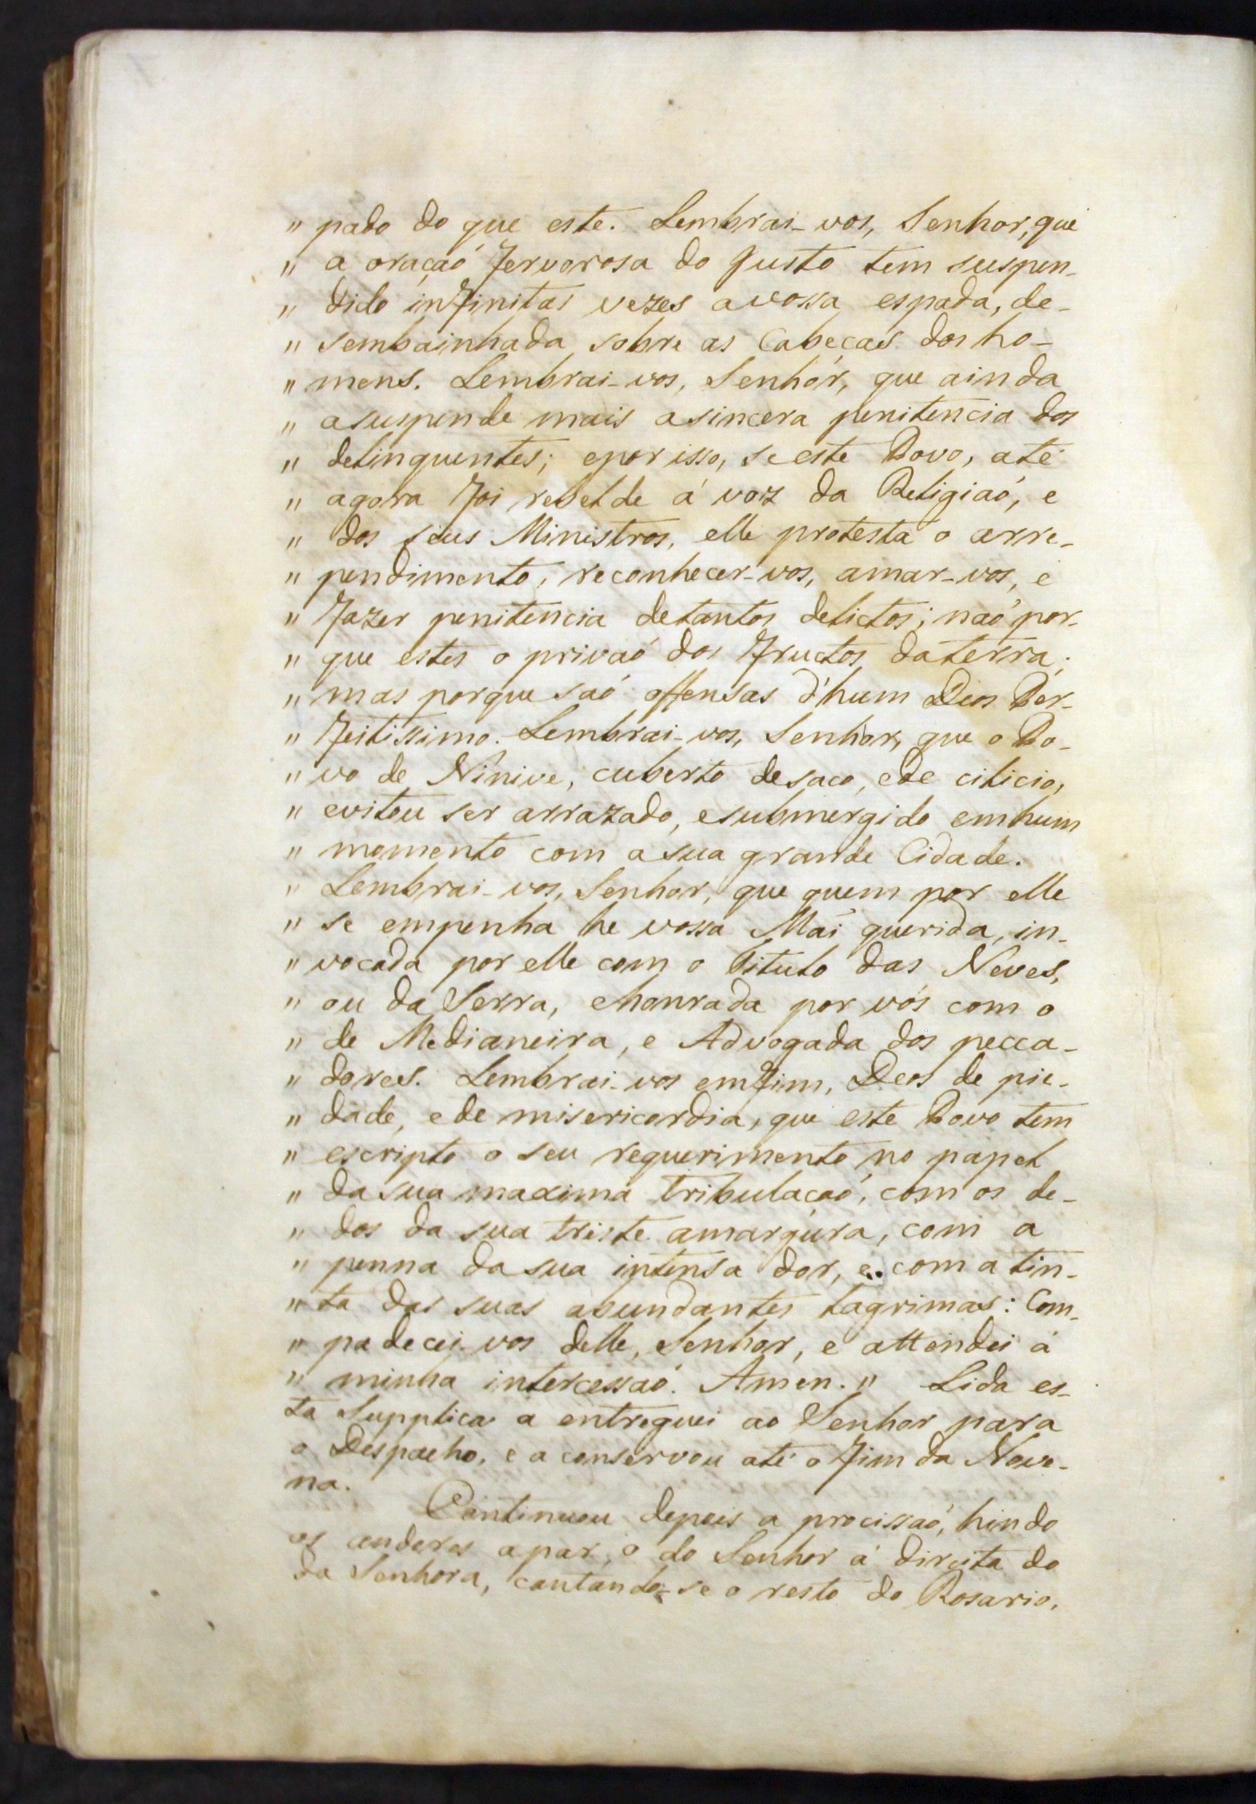 " pado do que este. Lembrai-vos, Senhor, que
" a oraçaõ fervorosa do Justo tem suspen-
" dido infinitas vezes avossa espada, de-
" sembainhada sobre as Cabeças dos ho-
" mens. Lembrai-vos, Senhor, que ainda
" asuspende mais asincera penitencia dos
" delinquentes; epor isso, se este Povo, até
" agora foi rebelde á voz da Religiaõ, e
" dos seus Ministros, elle protesta o arre-
" pendimento, reconhecer-vos, amar-vos, e
" fazer penitencia detantos delictos; naõ por-
" que estes o privaõ dos fructos daterra;
" mas porque saõ offensas d'hum Deos Per-
" feitissimo. Lembrai-vos, Senhor, que o Po-
" vo de Ninive, cuberto desaco, ede cilicio,
" evitou ser arrazado, esubmergido emhum
" momento com asua grande Cidade.
" Lembrai-vos, Senhor, que quem por elle
" se empenha he vossa Mãi querida, in-
" vocada por elle com o Titulo das Neves,
" ou da Serra, ehonrada por vós com o
" de Medianeira, e Advogada dos pecca-
" dores. Lembrai-vos emfim, Deos de pie-
" dade, ede misericordia, que este Povo tem
" escripto o seu requerimento no papel
" dasua maxima tribulaçaõ, com os de-
" dos da sua triste amargura, com a
" penna dasua intensa dor, e com a tin-
" ta das suas abundantes lagrimas: Com-
" padecei-vos delle, Senhor, e attendei á
" minha intercessaõ. Amen. " Lida es-
ta Supplica a entreguei ao Senhor para
o Despacho, e a conservou até o fim da Nove-
na.
Continuou depois a procissaõ, hindo
os andores apar, o do Senhor á direita do
da Senhora, cantando-se o resto do Rosario.